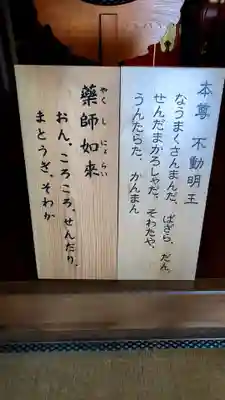 本尊 不動明王
なうまくさんまんだ、ばざら、だん、
せんだまかろしゃだ、そわたや、
うんたらた、かんまん
薬師如来
やくしにょらい
おん、ころころ、せんだり、
まとうぎ、そわか